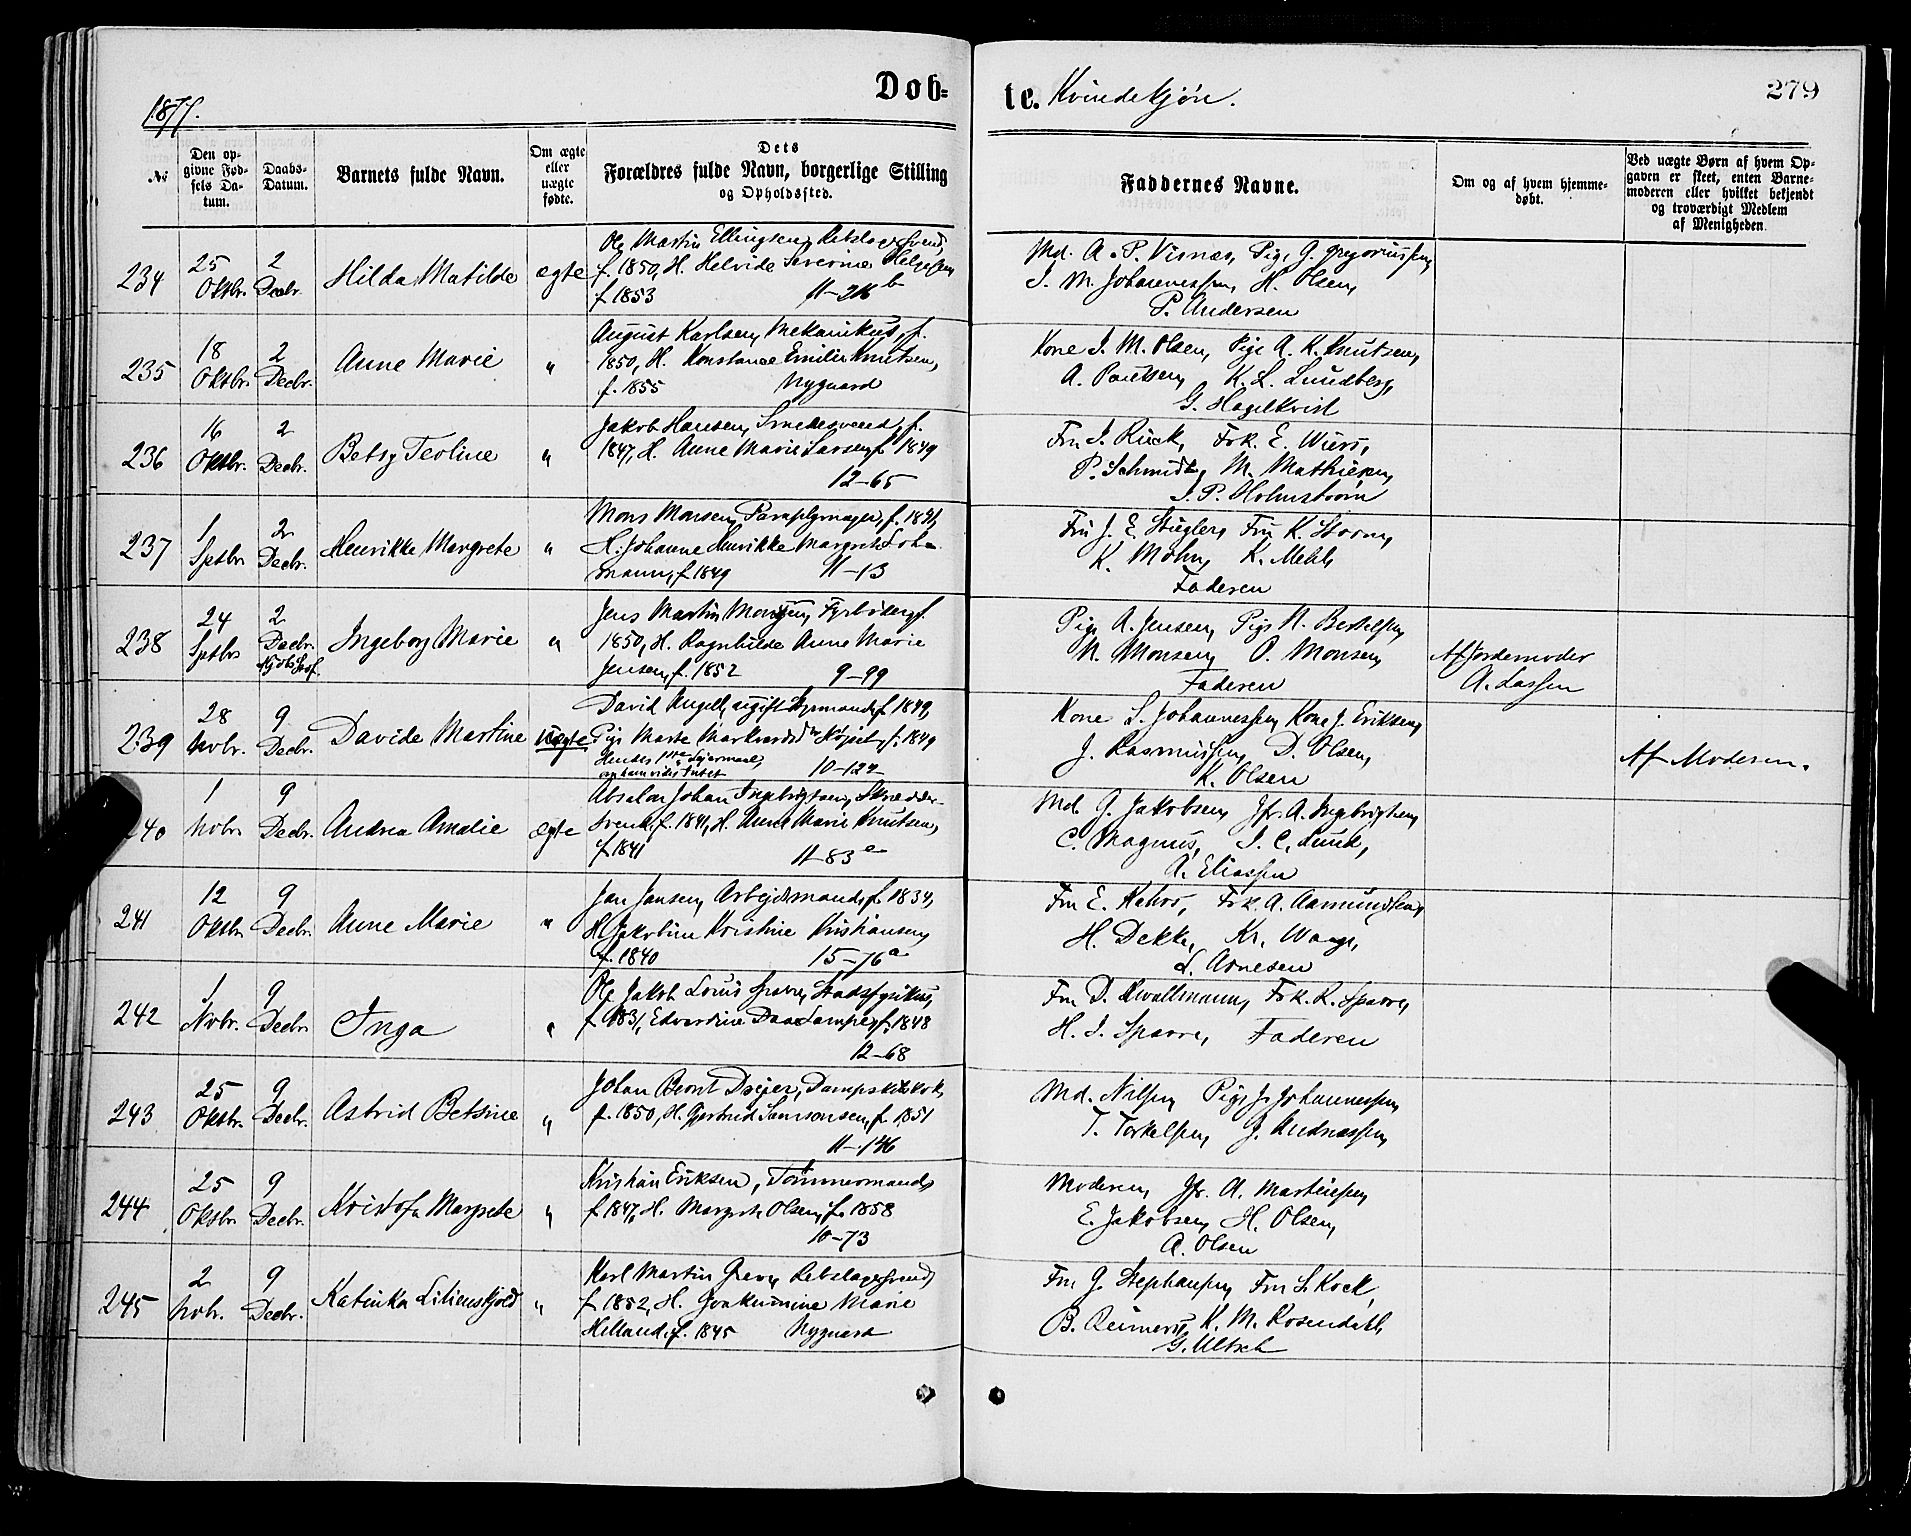 Døb=
te. Kvindekjøn.
279
1877.
№
Den op-
givne Fød-
sels Da-
tum.
Daabs-
Datum.
Barnets fulde Navn.
Om ægte
eller
uægte
fødte.
Dets
Forældres fulde Navn, borgerlige Stilling
og Opholdssted.
Faddernes Navne.
Om og af hvem hjemme-
døbt.
Ved uægte Børn af hvem Op-
gaven er skeet, enten Barne-
moderen eller hvilket bekjendt
og troværdigt Medlem
af Menigheden.
234
25
Oktbr.
2
Decbr.
Hilda Matilde
ægte
Ole Martin Ellingsen, Rebslagersvend,
f. 1850, H. Helvide Severine Helgesen
f. 1853 11-21b
Md. A. P. Visnes, Pige G. Gregoriussen,
J. M. Johannessen, H. Olsen,
P. Andersen
235
18
Oktbr.
2
Decbr.
Anne Marie
"
August Karlsen, Mekanikus, f.
1850, H. Konstance Emilie Knutsen,
f. 1855 Nygaard
Kone J. M. Olsen, Pige A. K. Knutsen,
A. Poulsen, K. L. Lundberg,
G. Hagelkvist
236
16
Oktbr.
2
Decbr.
Betsy Teoline
"
Jakob Hansen, Smedesvend, f.
1847, H. Anne Marie Larsen, f. 1849
12-65
Fru J. Rieck, Frk. E. Wiers,
P. Schmidt, M. Mathiesen,
J. P. Holmstrøm
237
1
Septbr
2
Decbr.
Henrikke Margrete
"
Mons Monsen, Paraplymager, f. 1841,
H. Johanne Henrikke Margrete Loh-
mann, f. 1849 11-13
Fru J. E. Stiegler, Fru K. Storm,
K. Mohn, K. Mehl,
Faderen
238
24
Septbr
2
Decbr.
Ingeborg Marie
"
Jens Martin Monsen, Fyrbøder, f.
1850, H. Ragnhilde Anne Marie
Jensen, f. 1852 9-99
Pige A. Jensen, Pige N. Bertelsen,
N. Monsen, O. Monsen,
Faderen
Af Jordemoder
A. Lassen
239
28
Novbr.
9
Decbr.
Davide Martine
uægte
David Angell, ugift Styrmand, f. 1849,
Pige Marte Markvardsdtr Køpset, f. 1849
Hendes 1ste Leiermaal,
om ham vides Intet 10-124
Kone S. Johannessen, Kone J. Eriksen,
J. Rasmussen, D. Olsen,
K. Olsen
Af Moderen.
240
1
Novbr
9
Decbr.
Andrea Amalie
ægte
Absalon Johan Ingebrigtsen, Skrædder-
svend, f. 1841, H. Anne Marie Knutsen,
f. 1841 11-83e
Md. G. Jakobsen, Jfr. A. Ingebrigtsen,
C. Magnus, J. C. Lund,
A. Eliassen
241
12
Oktbr.
9
Decbr.
Anne Marie
"
Jan Jansen, Arbeidsmand, f. 1834,
H. Jakobine Kristine Kristiansen,
f. 1840 15-76a
Fru E. Kahrs, Frk. A. Aamundsen,
H. Dekke, Kr. Waage,
L. Arnesen
242
1
Novbr.
9
Decbr
Inga
"
Ole Jakob Louis Sparre, Stadsfysikus,
f. 1831, Edvardine Daae Lampe, f. 1848
12-68
Fru D. Kwallmann, Frk. R. Sparre,
H. J. Sparre, Faderen
243
25
Oktbr.
9
Decbr.
Astrid Betsine
"
Johan Bernt Dreyer, Dampskibskok,
f. 1850, H. Gjertrud Samsonsen, f. 1851
11-146
Md. Nilsen, Pige J. Johannessen,
T. Torkelsen, J. Andreassen,
244
25
Oktbr.
9
Decbr.
Kristofa Margrete
"
Kristian Eriksen, Tømmermand,
f. 1847, H. Margrete Olsen, f. 1858
10-73
Moderen, Jfr. A. Martinsen,
E. Jakobsen, H. Olsen,
A. Olsen
245
2
Novbr.
9
Decbr.
Katinka Lilienskjold
"
Karl Martin Greve, Rebslagersvend,
f. 1852, H. Joakimine Marie
Helland, f. 1845 Nygaard
Fru J. Stephansen, Fru S. Kock,
B. Reimers, K. M. Rosendahl,
G. Ultsch